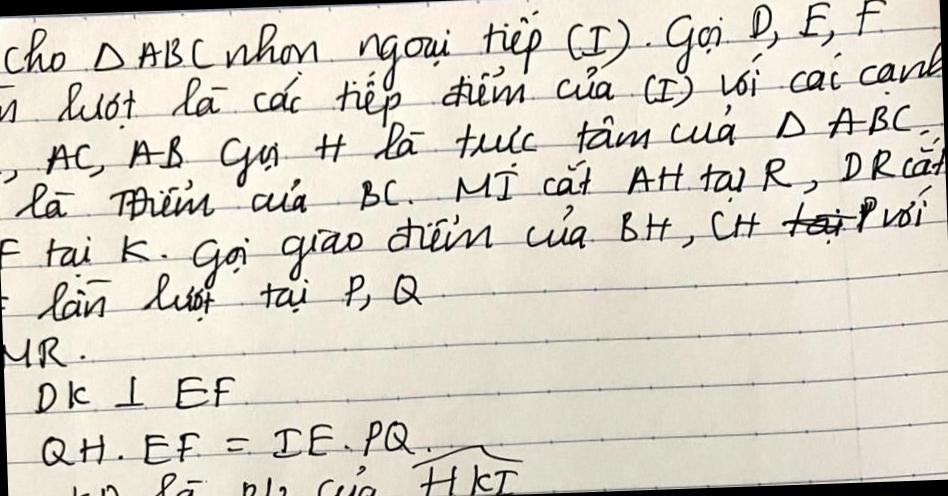 Cho △ ABC nhọn ngoại tiếp (I). Gọi D, E, F
n lượt là các tiếp điểm của (I) với các cạnh
, AC, AB Gọi H là trực tâm của △ ABC.
là điểm của BC. MI cắt AH tại R, DR cắt
F tại K. Gọi giao điểm của BH, CH với
lần lượt tại P, Q
MR.
DK ⊥ EF
QH. EF = IE. PQ.
là của HKI